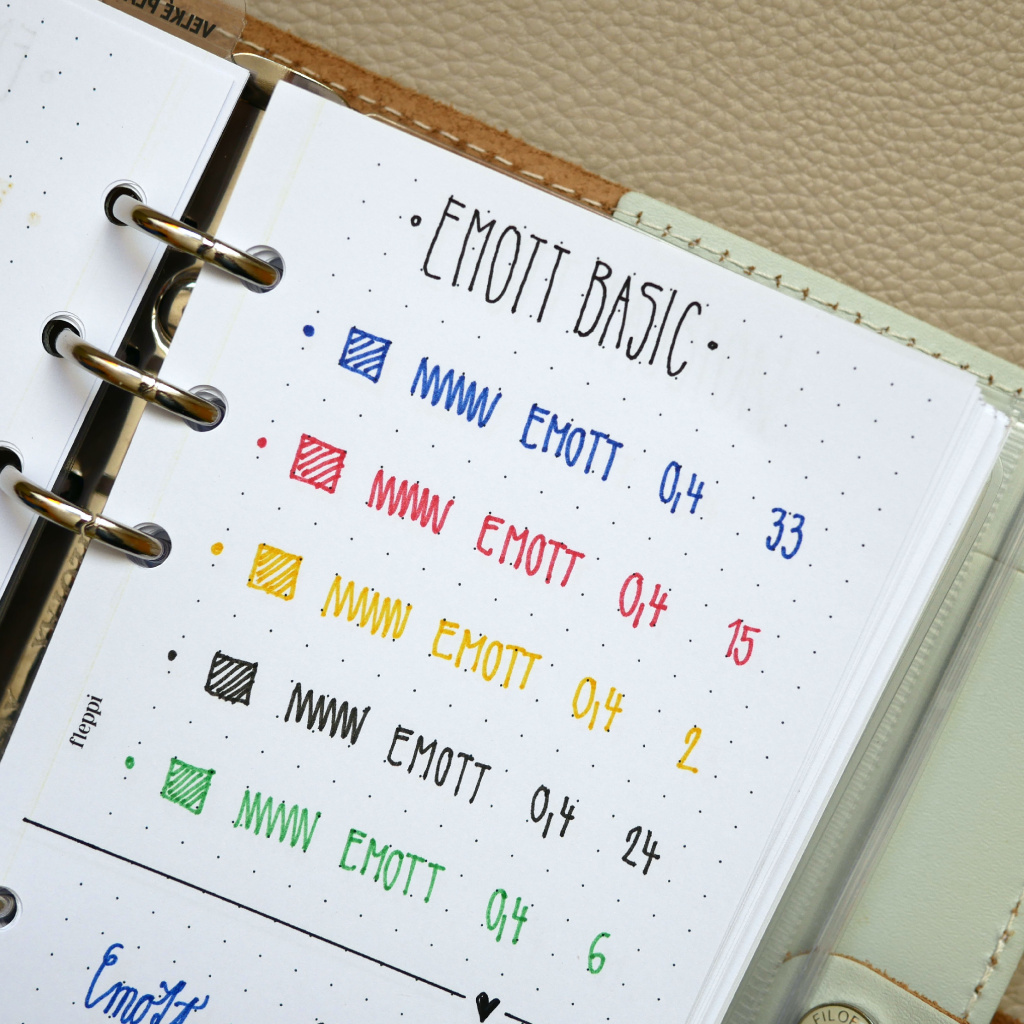 VELKÉ
• EMOTT BASIC •
• EMOTT 0,4 33
• EMOTT 0,4 15
• EMOTT 0,4 2
• EMOTT 0,4 24
• EMOTT 0,4 6
fleppi
Emott